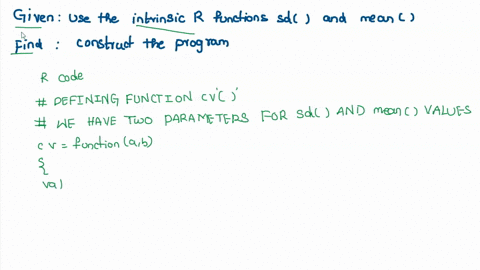 Given: use the intrinsic R functions sd() and mean()
Find: construct the program
R code
# DEFINING FUNCTION CV'()'
# WE HAVE TWO PARAMETERS FOR sd() AND mean() VALUES
cv = function(a,b)
{
val